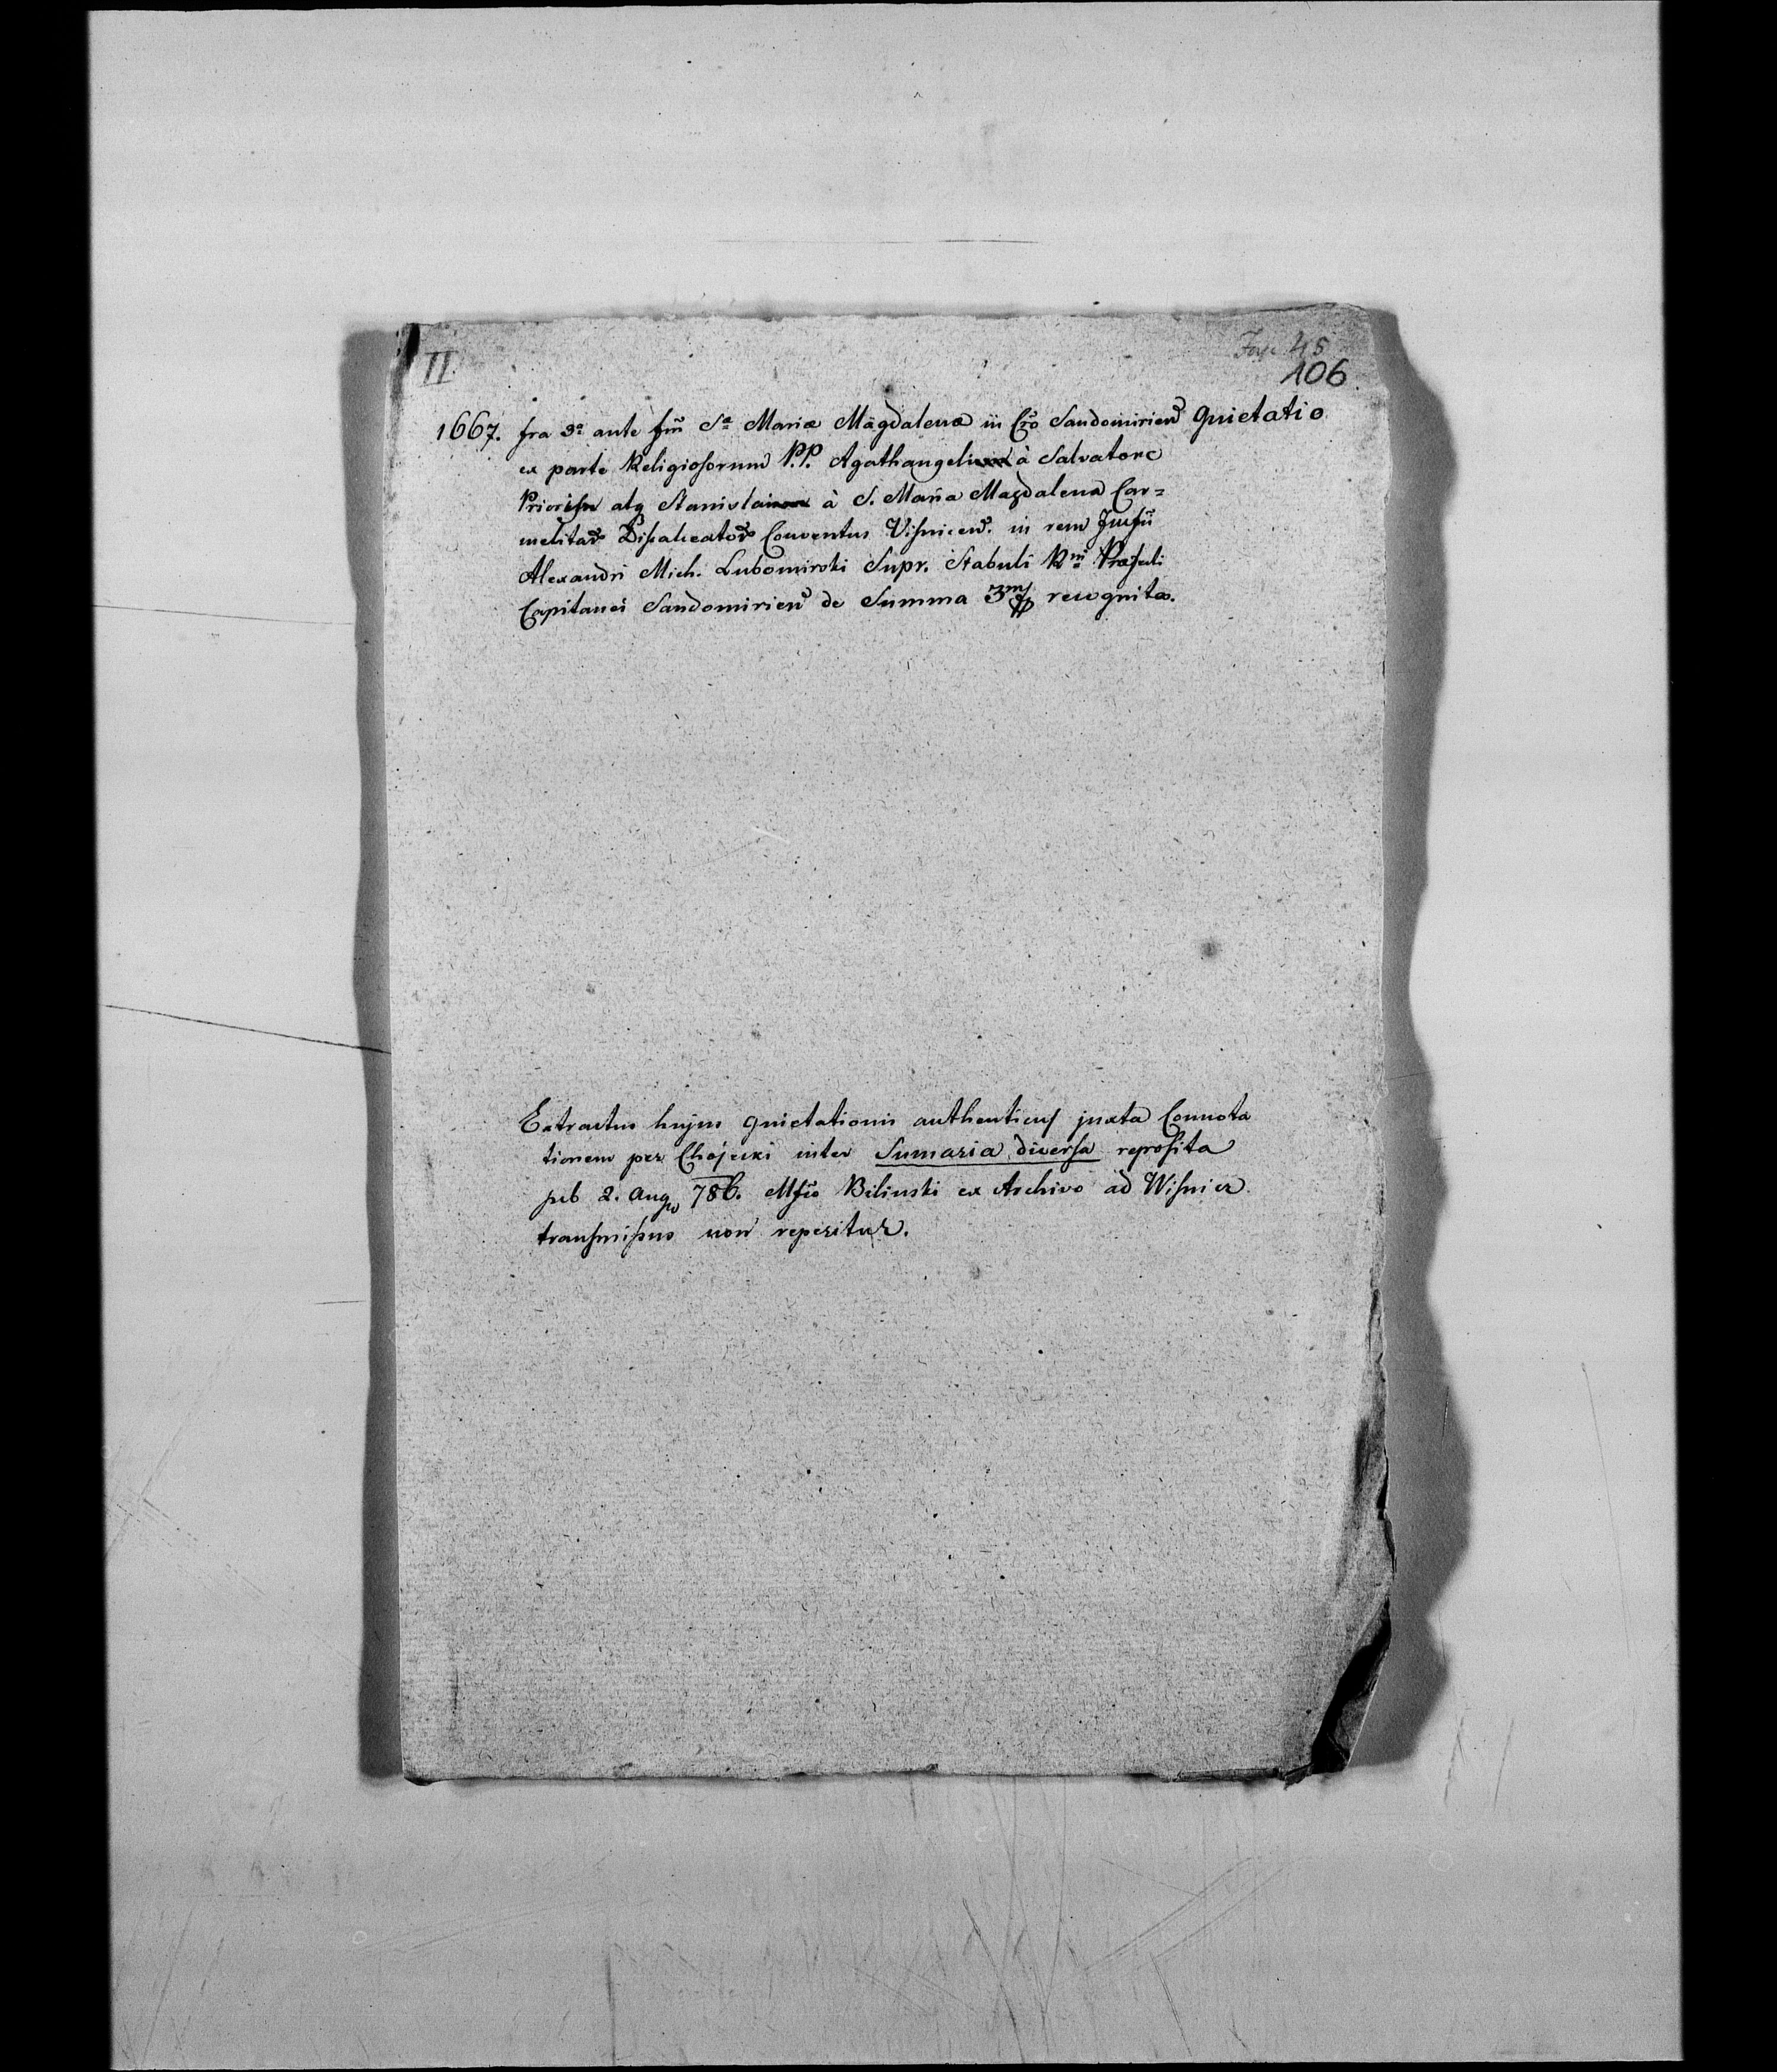 II.
45
106.
1667. fra 3a ante fm̄ Sae Mariæ Magdalenæ in Cro Sandomirien Quietatio
ex parte Religiosorum P.P. Agathangeli à Salvatore
Prioris atq Stanislai à S. Maria Magdalena Car=
melitar Discalceator Conventus Visnicen. in rem
Alexandri Mich. Lubomirski Supr. Stabuli Rni Præfecti
Capitanei Sandomirien de Summa 3m recognita.
Extractus hujus quietationis authenticus juxta Connota
tionem per Chojecki inter Sumaria diversa reposita
sub 2. Aug 786. Mfco Bilinski ex Archivo ad Wisnicz
transmissus non reperitur.